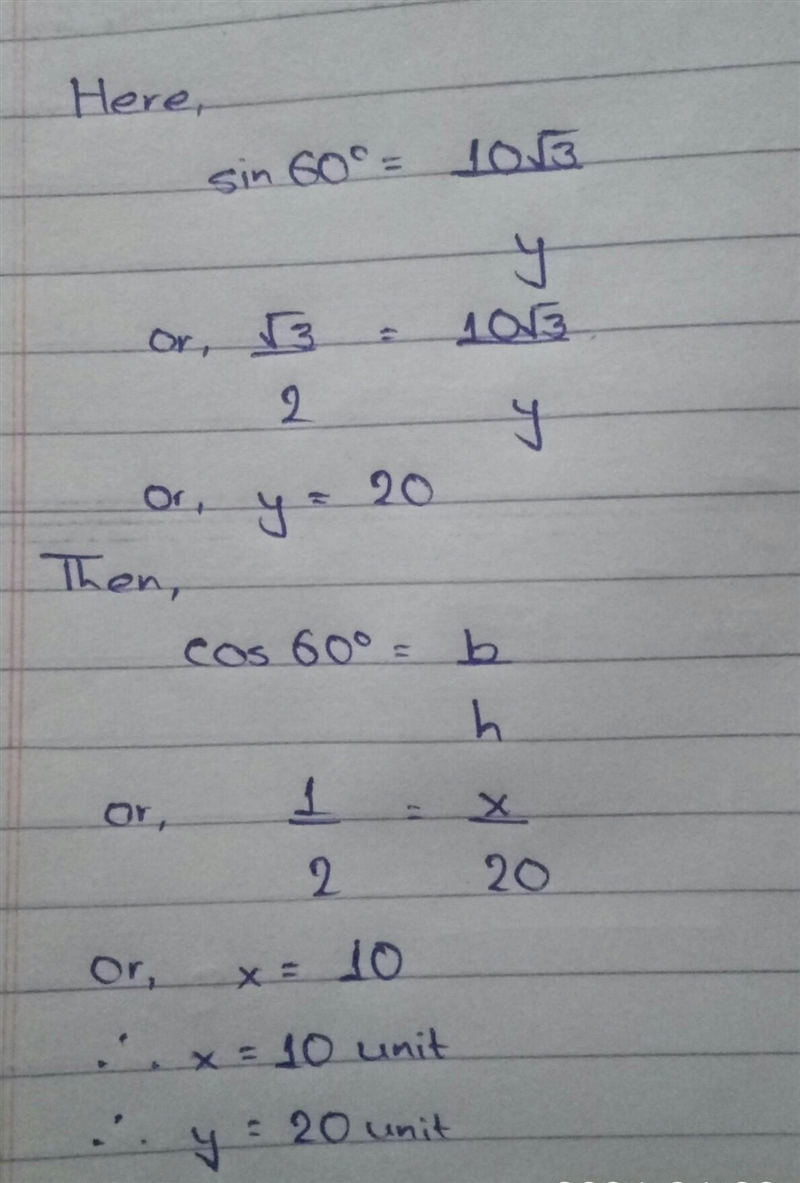 Here,
sin 60° = 10√3
y
or, √3 = 10√3
2 y
or, y = 20
Then,
cos 60° = b
h
or, 1 = x
2 20
or, x = 10
∴ x = 10 unit
∴ y = 20 unit